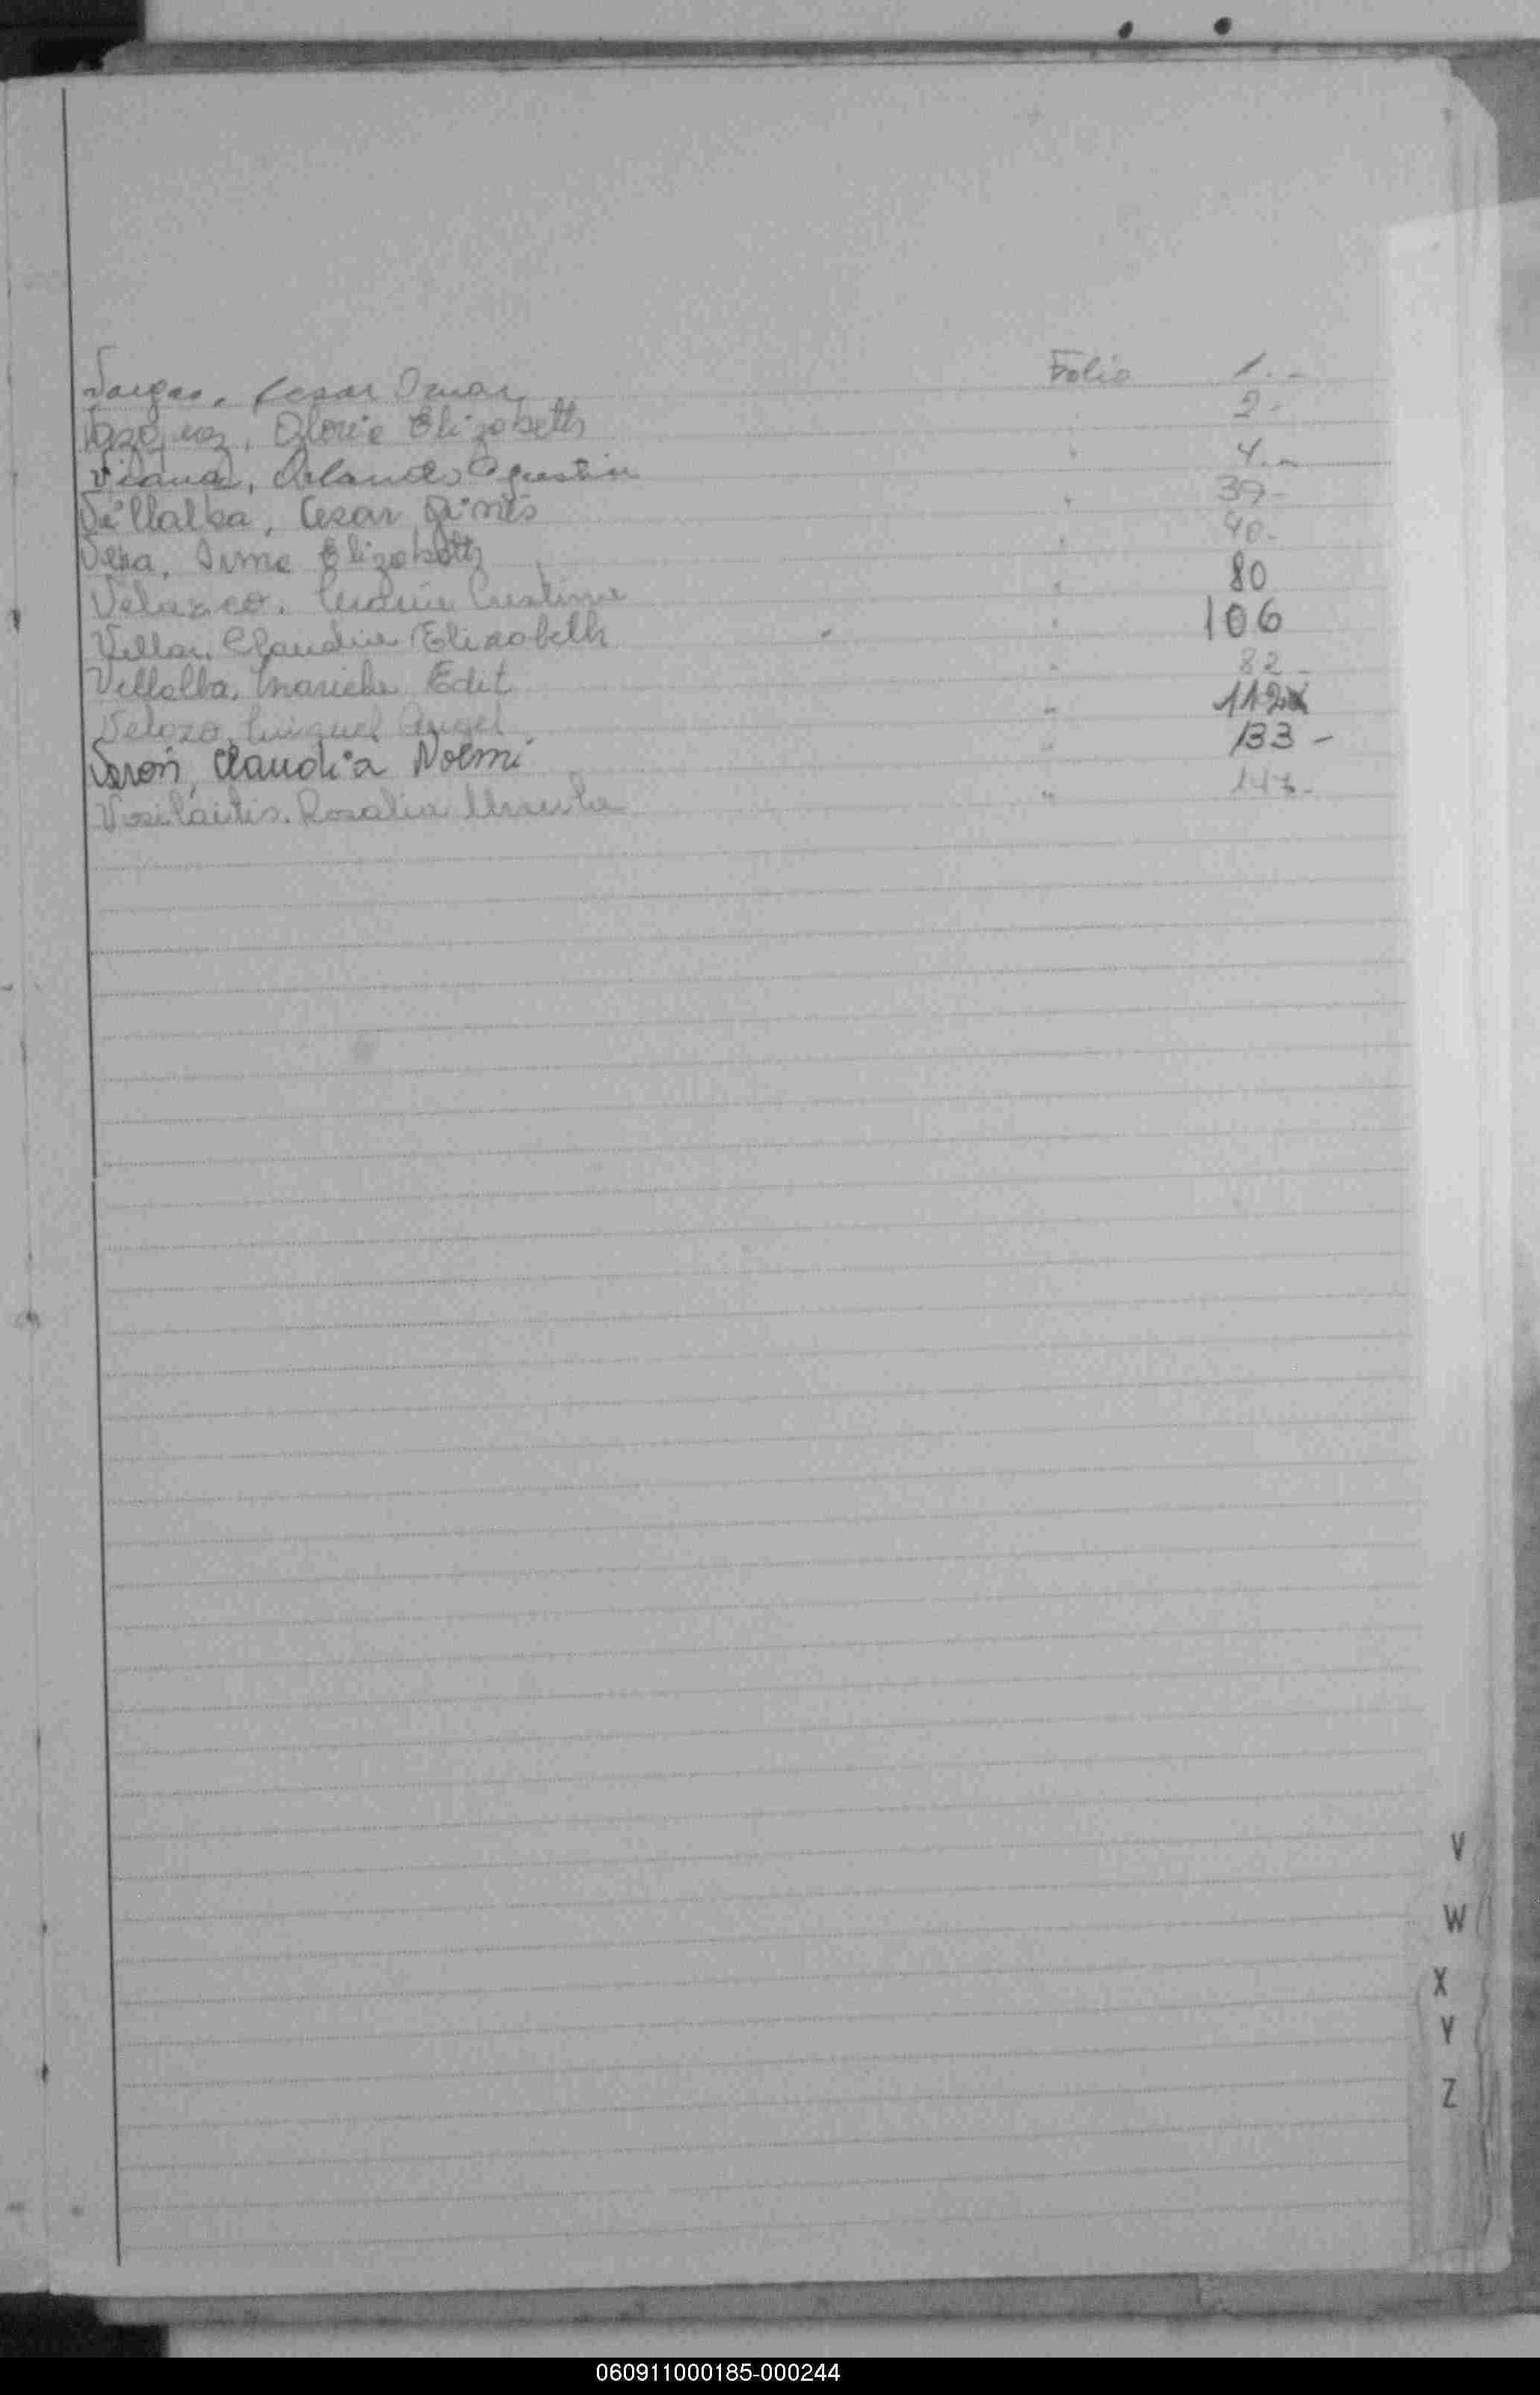 Vargas, Cesar Omar Folio 1.-
Vazquez, Gloria Elizabeth " 2-
Viana, Orlando Agustin " 4.-
Villalba, Cesar Ginés " 39-
Vera, Irma Elizabeth " 40-
Velazco, Cristina " 80
Villar, Claudia Elizabeth " 106
Villalba, Mariela Edit " 82-
Velozo, Miguel Angel " 112
Verón, Claudia Noemi " 133-
Vosilaitis, Rosalia Ursula " 147-
V
W
X
Y
Z
060911000185-000244